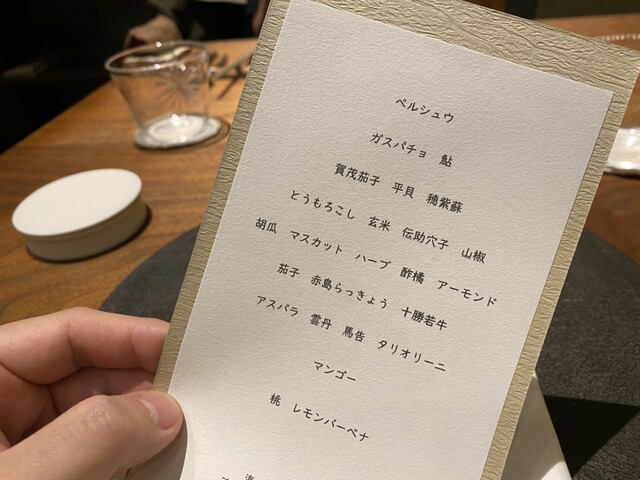 ペルシュウ
ガスパチョ 鮎
賀茂茄子 平貝 穂紫蘇
とうもろこし 玄米 伝助穴子 山椒
胡瓜 マスカット ハーブ 酢橘 アーモンド
茄子 赤島らっきょう 十勝若牛
アスパラ 雲丹 馬告 タリオリーニ
マンゴー
桃 レモンバーベナ